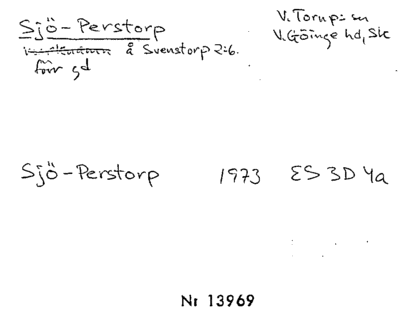 Sjö-Perstorp
V. Torup: sn
å Svenstorp 2:6.
V. Göinge hd, Sk
förr gd
Sjö-Perstorp 1973 ES 3D 4a
Nr 13969